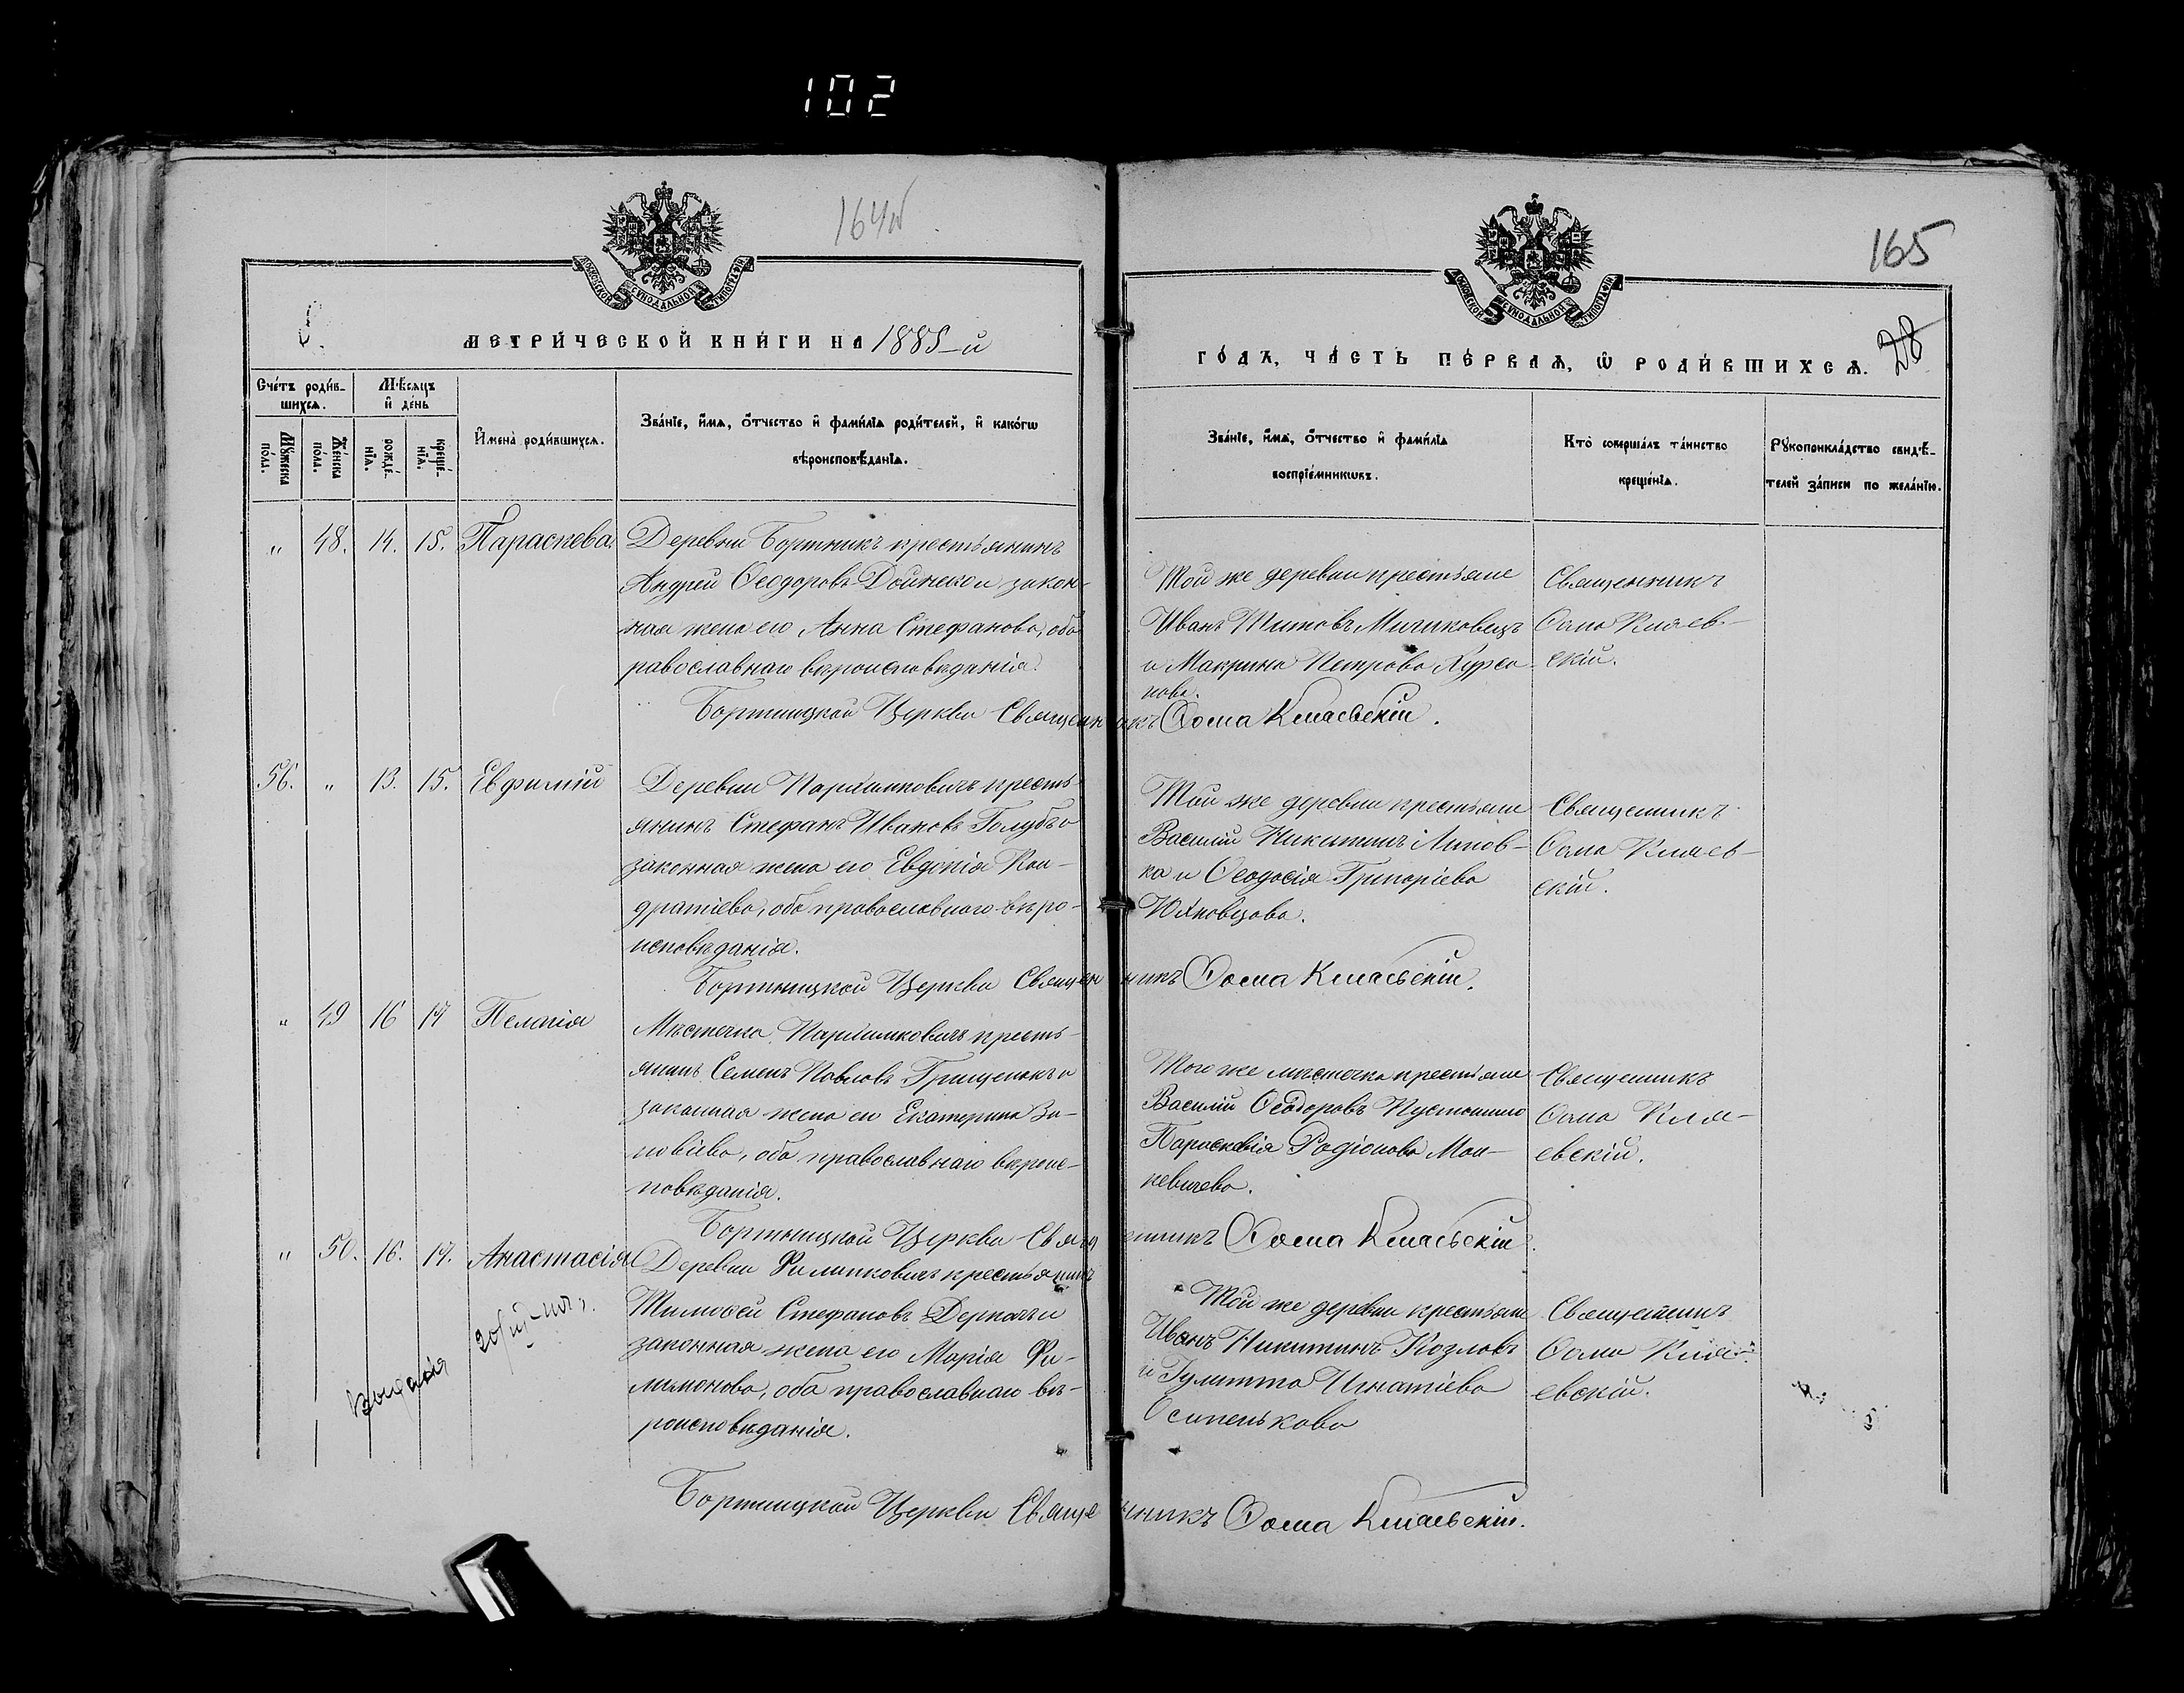 102
164
165
28
МОСКОВСКОЙ СѴНОДАЛЬНОЙ ТИПОГРАФІИ
МОСКОВСКОЙ СѴНОДАЛЬНОЙ ТИПОГРАФІИ
МЕТРИ́ЧЕСКОЙ КНИ́ГИ НА 1885-й
ГО́ДЪ, ЧА́СТЬ ПЕ́РВАѦ, Ѿ РОДИ́ВШИХСѦ.
Сче́тъ роди́в-
шихсѧ.
Мꙋ́жеска по́ла.
Же́нска по́ла.
Мѣ́сѧцъ
и҆ де́нь
рожде́-
нїѧ.
креще́-
нїѧ.
И҆мена̀ роди́вшихсѧ.
Зва́нїе, и҆́мѧ, ѻ҆́тчество и҆ фами́лїѧ роди́телей, и҆ како́гѡ
вѣроисповѣ́данїѧ.
Зва́нїе, и҆́мѧ, ѻ҆́тчество и҆ фами́лїѧ
воспрїе́мникѡвъ.
Кто̀ соверша́лъ та́инство
креще́нїѧ.
Рꙋкоприкла́дство свидѣ́-
телей за́писи по жела́нїю.
" 48. 14. 15. Параскева.
Деревни Бортникъ крестьянинъ
Андрей Ѳеодоровъ и закон-
ная жена его Анна Стефанова, оба
православнаго вѣроисповѣданія.
Той же деревни крестьяне
Иванъ Титовъ
и Макрина Петрова Хурса-
нова.
Священникъ
Ѳома Кмаев-
скій.
Бортницкой Церкви Священникъ Ѳома Кмаевскій.
56. " 13. 15. Евфимій
Деревни Паримковичъ кресть-
янинъ Стефанъ Ивановъ Голубъ и
законная жена его Евдокія Кон-
дратіева, оба православнаго вѣро-
исповѣданія.
Той же деревни крестьяне
Василій Никитинъ Липов-
ка и Ѳеодосія Григоріева
Юхновцова.
Священникъ
Ѳома Кмаев-
скій.
Бортницкой Церкви Священникъ Ѳома Кмаевскій.
" 49 16 17 Пелагія
Мѣстечка Паримковичъ кресть-
янинъ Семенъ Павловъ Грищенокъ и
законная жена его Екатерина Зи-
новіева, оба православнаго вѣроис-
повѣданія.
Того же мѣстечка крестьяне
Василій Ѳеодоровъ
Параскевія Родіонова Мон-
кевичева.
Священникъ
Ѳома Кмая-
евскій.
Бортницкой Церкви Священникъ Ѳома Кмаевскій.
" 50. 16. 17. Анастасія
Деревни Филипковичъ крестьянинъ
Тимоѳей Стефановъ Деркачъ и
законная жена его Марія Фи-
лимонова, оба православнаго вѣ-
роисповѣданія.
Той же деревни крестьяне
Иванъ Никитинъ Козловъ
и Гулитта Игнатіева
Осипенькова
Священникъ
Ѳома Кмая-
евскій.
Бортницкой Церкви Священникъ Ѳома Кмаевскій.